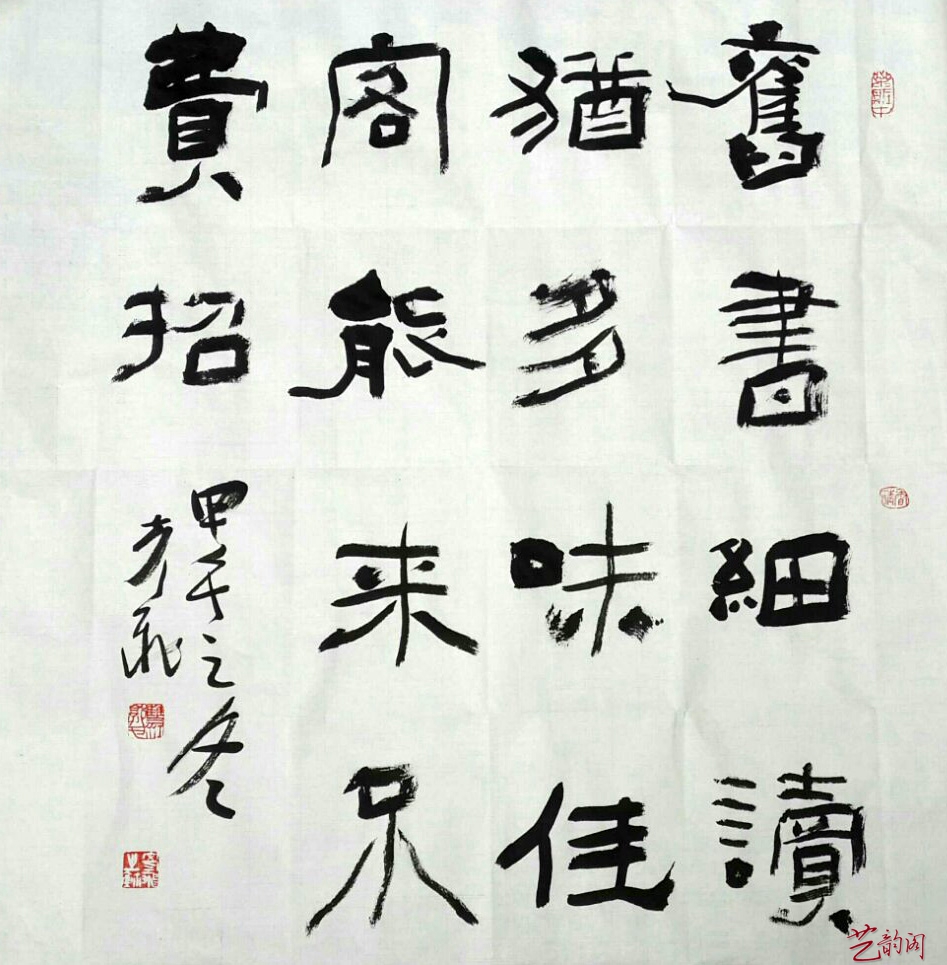 舊書細讀
猶多味佳
客能来不
費招
甲午之冬
艺韵阁